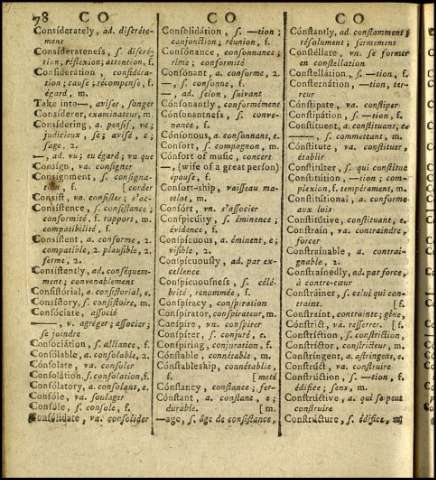 78 C O C O C O
Considerately, ad. discrète-
ment
Considerateness, s. discré-
tion, réflexion; attention, f.
Consideration, considéra-
tion; cause; récompense, f.
égard, m.
Take into—, aviser, songer
Considerer, examinateur, m.
Considering, a. pensif, ve;
judicieux, se; avisé, e;
sage, 2.
—, ad. vu; eu égard; vu que
Consign, va. consigner
Consignment, s. consigna-
tion, f. [corder
Consist, va. consister; s'ac-
Consistence, s. consistance;
conformité, f. rapport, m.
compatibilité, f.
Consistent, a. conforme, 2.
compatible, 2. plausible, 2.
ferme, 2.
Consistently, ad. conséquem-
ment; convenablement
Consistórial, a. consistorial, e.
Consistory, s. consistoire, m.
Consóciate, associé
—, v. agréger; associer;
se joindre
Consociátion, s. alliance, f.
Consólable, a. consolable, 2.
Cónsolate, va. consoler
Consolátion, s. consolation, f.
Consólatory, a. consolant, e.
Consóle, va. soulager
Consóle, s. console, f.
Consólidate, va. consolider
Consolidátion, s. —tion;
conjonction, réunion, f.
Consonance, consonnance;
rime; conformité
Consonant, a. conforme, 2.
—, s. consonne, f.
—, ad. selon, suivant
Consonantly, conformément
Consonantness, s. conve-
nance, f.
Consonous, a. consonnant, e.
Consort, s. compagnon, m.
Consort of music, concert
—, (wife of a great person)
épouse, f.
Consort-ship, vaisseau ma-
telot, m.
Consórt, vn. s'associer
Conspicuity, s. éminence;
évidence, f.
Conspicuous, a. éminent, e;
visible, 2.
Conspicuously, ad. par ex-
cellence
Conspicuousness, s. célé-
brité, renommée, f.
Conspiracy, conspiration
Conspirator, conspirateur, m.
Conspire, vn. conspirer
Conspirer, s. conjuré, e.
Conspiring, conjuration, f.
Constable, connétable, m.
Constableship, connétablie,
f. [meté
Cónstancy, constance; fer-
Cónstant, a. constant, e;
durable. [m.
—age, s. âge de consistance,
Constantly, ad. constamment;
résolument; fermement
Constellate, vn. se former
en constellation
Constellátion, s. —tion, f.
Consternátion, —tion, ter-
reur
Cónstipate, va. constiper
Constipátion, s. —tion, f.
Constituent, a. constituant, e.
—, s. commettant, m.
Cónstitute, va. constituer;
établir
Constituter, s. qui constitue
Constitútion, —tion; com-
plexion, f. tempérament, m.
Constitútional, a. conforme
aux loix
Constitutive, constituant, e.
Constrain, va. contraindre,
forcer
Constrainable, a. contrai-
gnable, 2.
Constrainedly, ad. par force,
à contre-cœur
Constrainer, s. celui qui con-
traint. [f.
Constraint, contrainte; gêne,
Constrict, va. resserrer. [f.
Constriction, s. constriction,
Constrictor, constricteur, m.
Constringent, a. astringent, e.
Construct, va. construire
Construction, s. —tion, f.
édifice; sens, m.
Constructive, a. qui se peut
construire
Constructure, s. édifice, m.